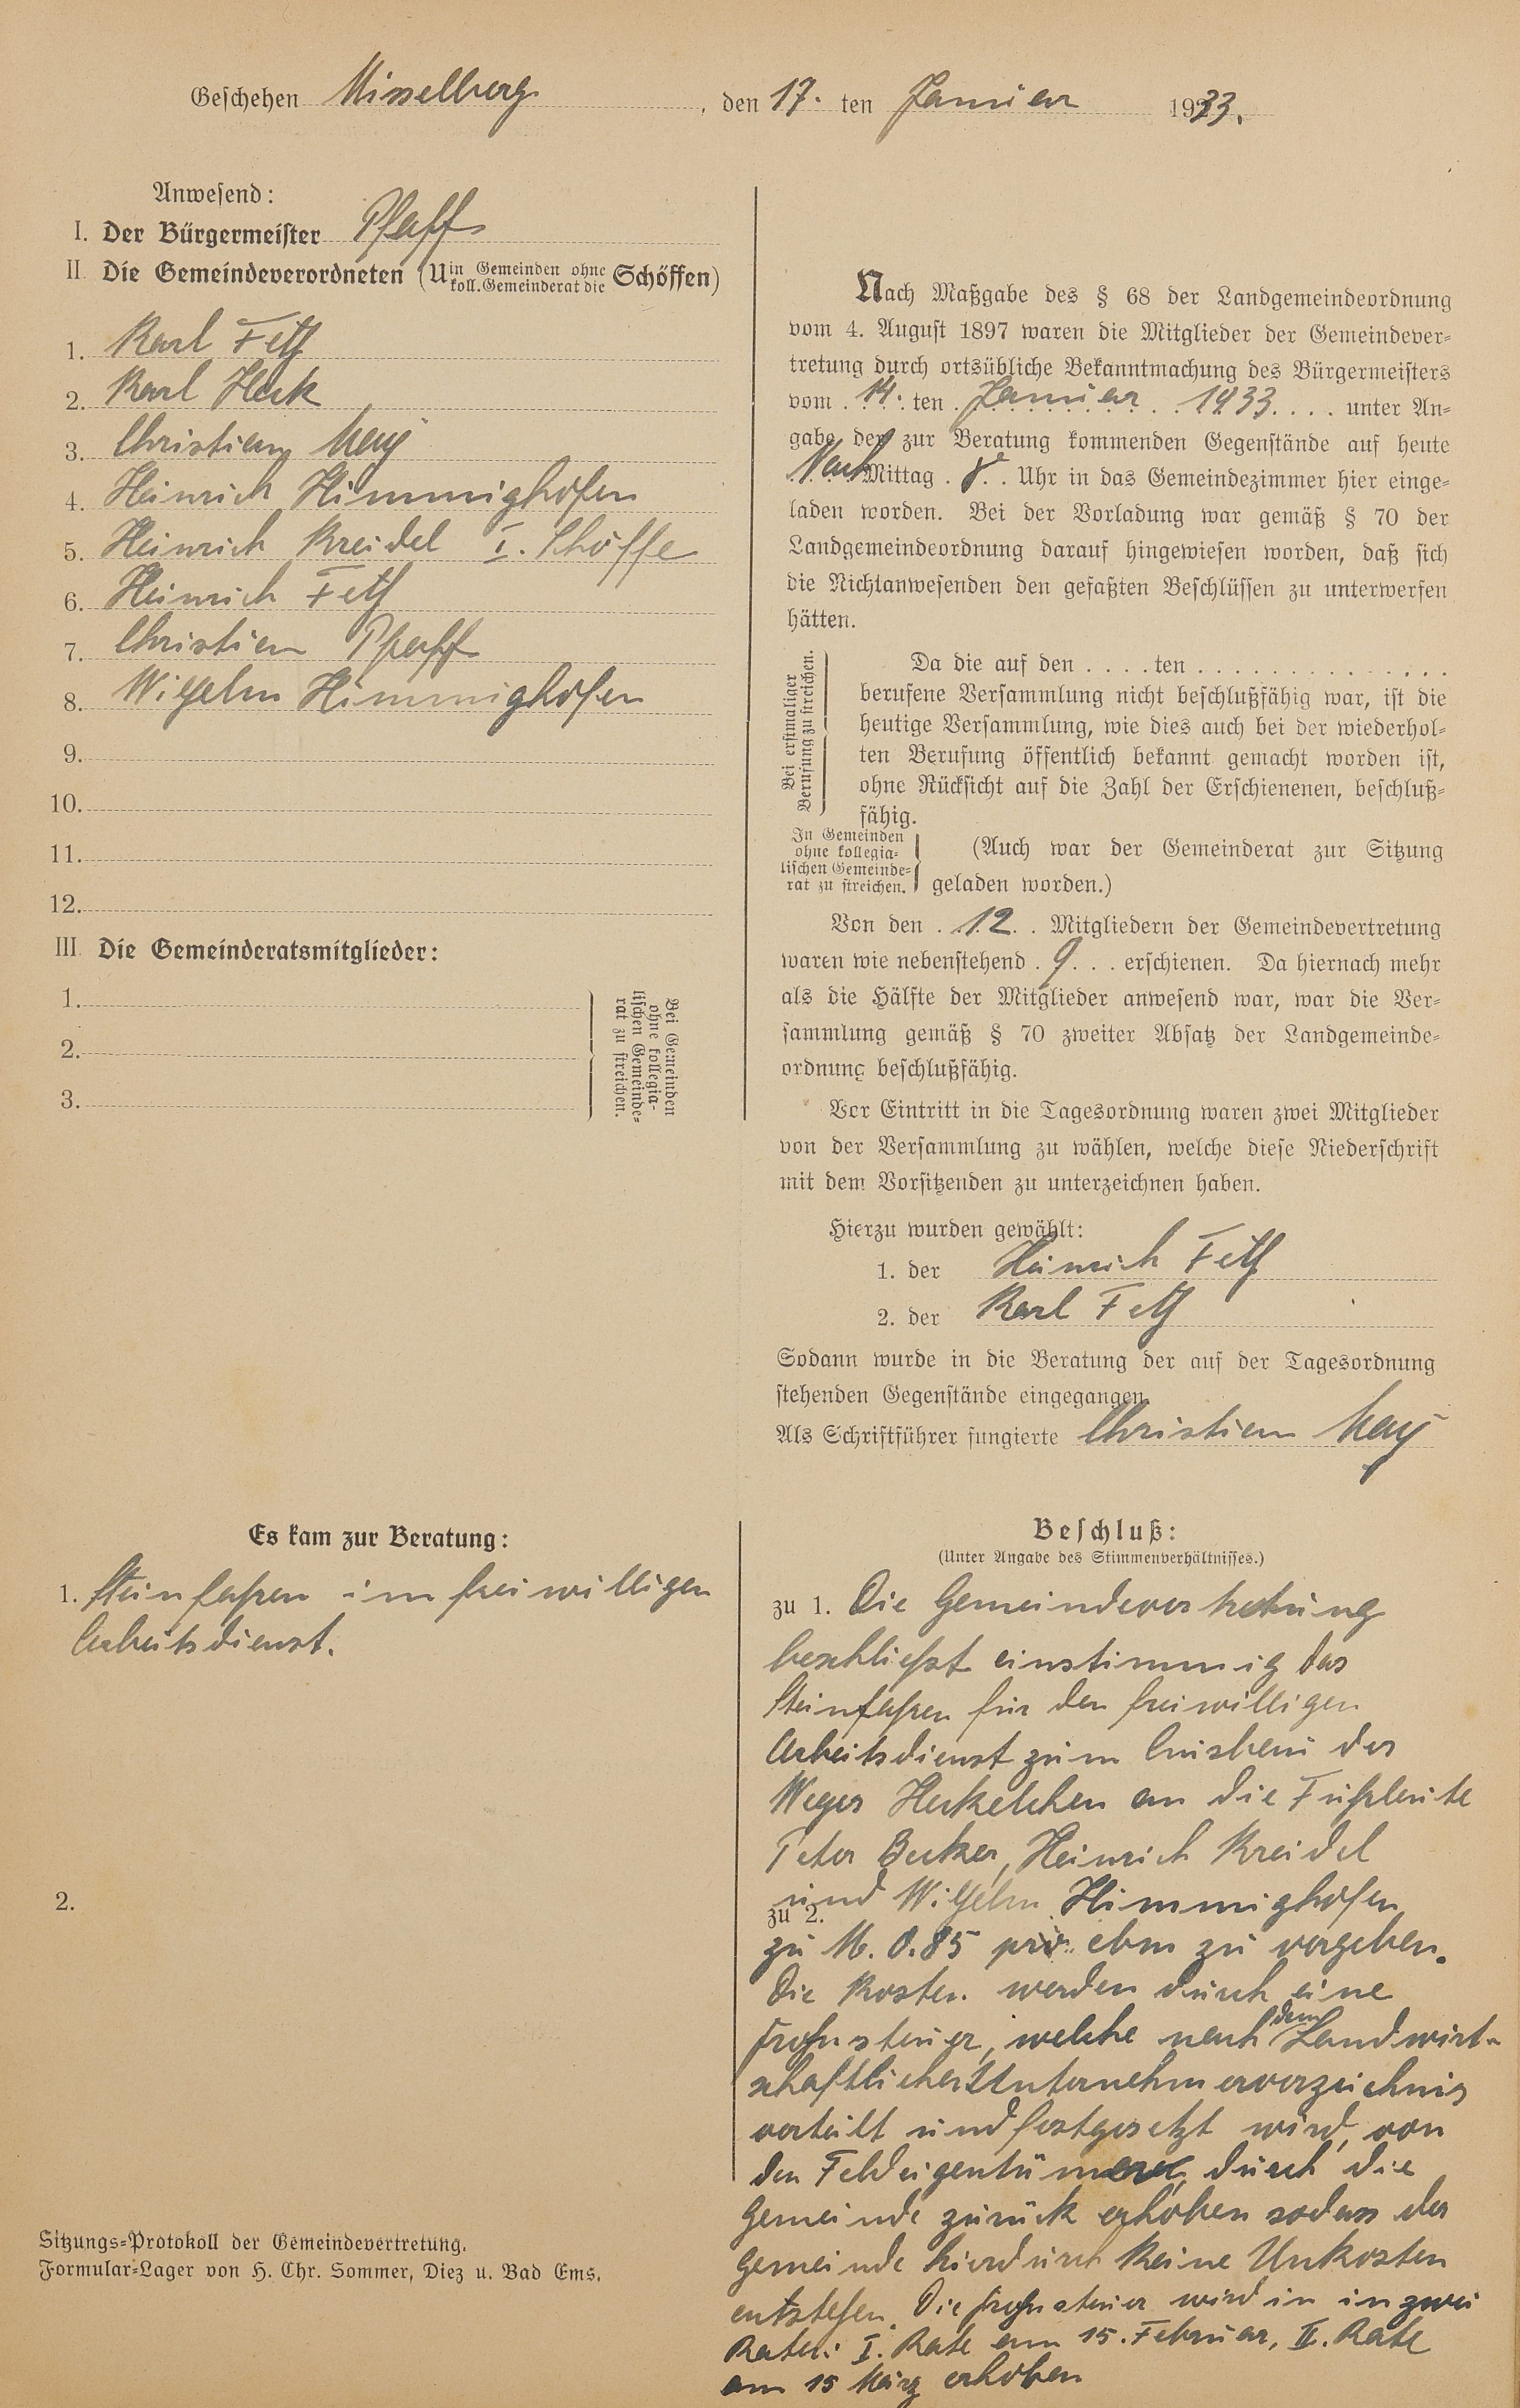 Geschehen Misselberg, den 17. ten Januar 1933.
Anwesend:
I. Der Bürgermeister Pfaff
II. Die Gemeindeverordneten (U in Gemeinden ohne koll. Gemeinderat die Schöffen)
1. Karl Feth
2. Karl Heck
3. Christian May
4. Heinrich Himmighofen
5. Heinrich Kreidel I. Schöffe
6. Heinrich Feth
7. Christian Pfaff
8. Wilhelm Himmighofen
9.
10.
11.
12.
III. Die Gemeinderatsmitglieder:
1.
2.
3.
Bei Gemeinden
ohne kollegia-
lischen Gemeinde-
rat zu streichen.
Nach Maßgabe des § 68 der Landgemeindeordnung
vom 4. August 1897 waren die Mitglieder der Gemeindever-
tretung durch ortsübliche Bekanntmachung des Bürgermeisters
vom 14. ten Januar 1933 .... unter An-
gabe der zur Beratung kommenden Gegenstände auf heute
Nach Mittag 8 Uhr in das Gemeindezimmer hier einge-
laden worden. Bei der Vorladung war gemäß § 70 der
Landgemeindeordnung darauf hingewiesen worden, daß sich
die Nichtanwesenden den gefaßten Beschlüssen zu unterwerfen
hätten.
Bei erstmaliger
Berufung zu streichen.
Da die auf den .... ten ..............
berufene Versammlung nicht beschlußfähig war, ist die
heutige Versammlung, wie dies auch bei der wiederhol-
ten Berufung öffentlich bekannt gemacht worden ist,
ohne Rücksicht auf die Zahl der Erschienenen, beschluß-
fähig.
In Gemeinden
ohne kollegia-
lischen Gemeinde-
rat zu streichen.
(Auch war der Gemeinderat zur Sitzung
geladen worden.)
Von den . 12. . Mitgliedern der Gemeindevertretung
waren wie nebenstehend . 9. . . erschienen. Da hiernach mehr
als die Hälfte der Mitglieder anwesend war, war die Ver-
sammlung gemäß § 70 zweiter Absatz der Landgemeinde-
ordnung beschlußfähig.
Vor Eintritt in die Tagesordnung waren zwei Mitglieder
von der Versammlung zu wählen, welche diese Niederschrift
mit dem Vorsitzenden zu unterzeichnen haben.
Hierzu wurden gewählt:
1. der Heinrich Feth
2. der Karl Feth
Sodann wurde in die Beratung der auf der Tagesordnung
stehenden Gegenstände eingegangen.
Als Schriftführer fungierte Christian May
Es kam zur Beratung:
1. Steinfahren im freiwilligen
Arbeitsdienst.
2.
Beschluß:
(Unter Angabe des Stimmenverhältnisses.)
zu 1. Die Gemeindevertretung
beschließt einstimmig das
Steinfahren für den freiwilligen
Arbeitsdienst zum Ausbau des
Weges Heckelchen an die Fuhrleute
Peter Becker, Heinrich Kreidel
und Wilhelm Himmighofen
zu 2.
zu M. 0.85 pro cbm zu vergeben.
Die Kosten werden durch eine
Frohnsteuer, welche nach dem Landwirt-
schaftlichen Unternehmerverzeichnis
verteilt und festgesetzt wird, von
den Feldeigentümern durch die
Gemeinde zurück erhoben sodass der
Gemeinde hierdurch keine Unkosten
entstehen. Die Frohnsteuer wird in in zwei
Raten: I. Rate am 15. Februar, II. Rate
am 15 März erhoben
Sitzungs-Protokoll der Gemeindevertretung.
Formular-Lager von H. Chr. Sommer, Diez u. Bad Ems.